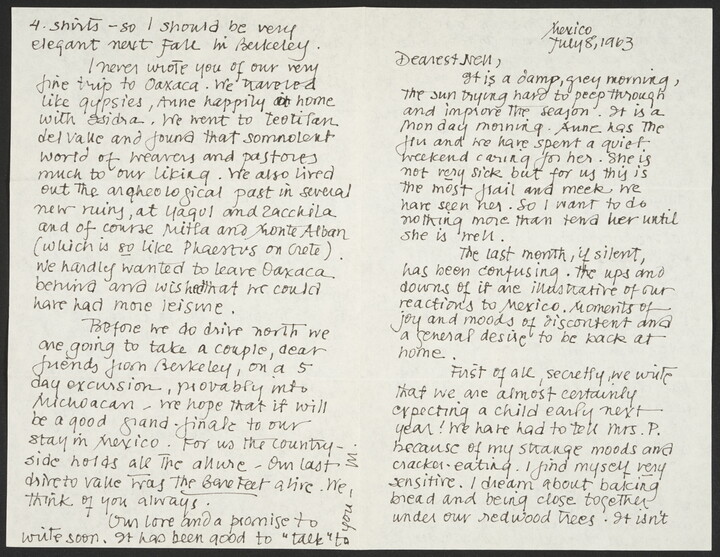 4. shirts - so I should be very
elegant next Fall in Berkeley.
I never wrote you of our very
fine trip to Oaxaca. We traveled
like gypsies, Anne happily at home
with Isidra. We went to Teotitlan
del Valle and found that somnolent
world of weavers and pastores
much to our liking. We also lived
out the archeological past in several
new ruins, at Yagul and Zacchila
and of course Mitla and Monte Alban
(which is so like Phaestus on Crete).
We hardly wanted to leave Oaxaca
behind and wished that we could
have had more leisure.
Before we do drive north we
are going to take a couple, dear
friends from Berkeley, on a 5
day excursion, provably into
Michoacan - We hope that it will
be a good grand-finale to our
stay in Mexico. For us the country-
side holds all the allure - Our last
drive to Valle was The Bare Feet alive. We
think of you always.
Our love and a promise to
write soon. It has been good to "talk" to
you, - M.
Mexico
July 8, 1963
Dearest Nell,
It is a damp, grey morning,
the sun trying hard to peep through
and improve the season. It is a
Monday morning. Anne has the
flu and we have spent a quiet
weekend caring for her. She is
not very sick but for us this is
the most frail and meek we
have seen her. So I want to do
nothing more than tend her until
she is well.
The last month, if silent,
has been confusing. The ups and
downs of it are illustrative of our
reactions to Mexico. Moments of
joy and moods of discontent and
a general desire to be back at
home.
First of all, secretly, we write
that we are almost certainly
expecting a child early next
year! We have had to tell Mrs. P.
because of my strange moods and
cracker-eating. I find myself very
sensitive. I dream about baking
bread and being close together
under our redwood trees. It isn't